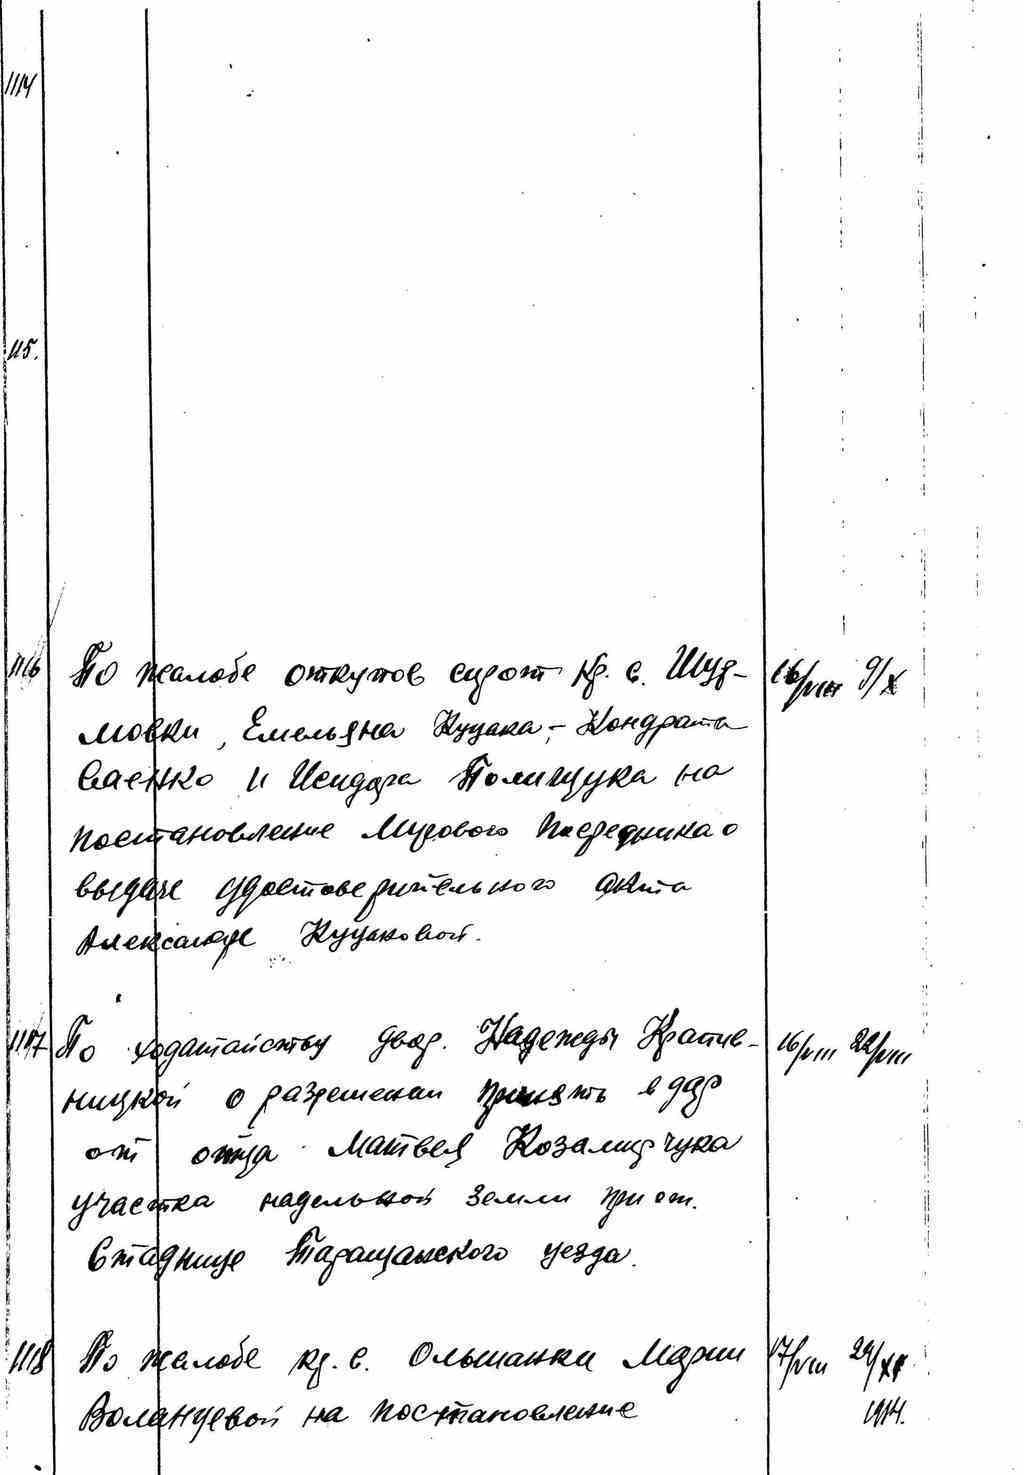 1114
1115.
1116 По жалобе опекунов сирот кр. с. Шуд-
мовки, Емельяна Куцака, Кондрата
Саенко и Исидора Полищука на
постановление Мирового Посредника о
выдаче удостоверительного акта
Александре Куцаковой.
16/VIII 9/X
1117 По ходатайству двор. Надежды Крапив-
ницкой о разрешении принять в дар
от отца Матвея
участка надельной земли при ст.
Стаднице Таращанского уезда.
16/VIII 22/VIII
1118 По жалобе кр. с. Ольшанки Марии
Воланцевой на постановление
17/VIII 29/XI
1914.